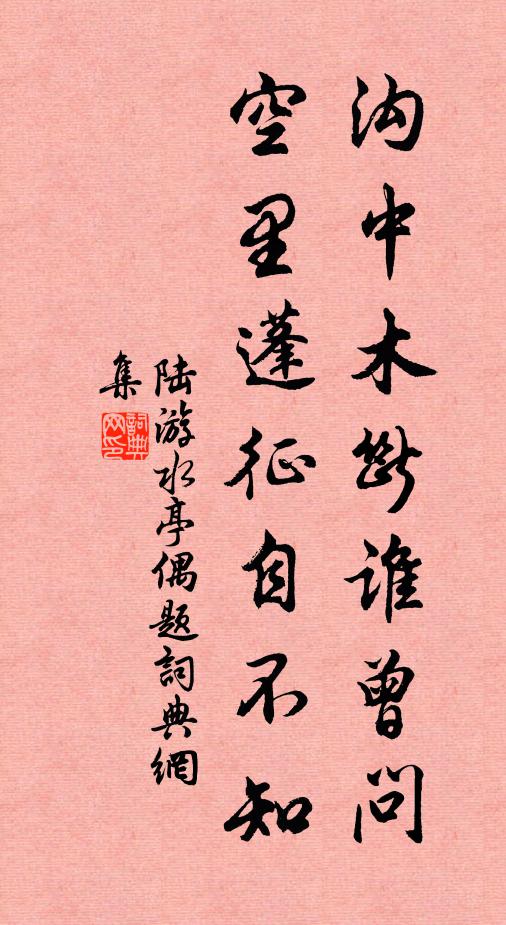 沟中木斷谁曾問
空里蓬征自不知
陆游水亭偶题詞典網
集
詞典
网印